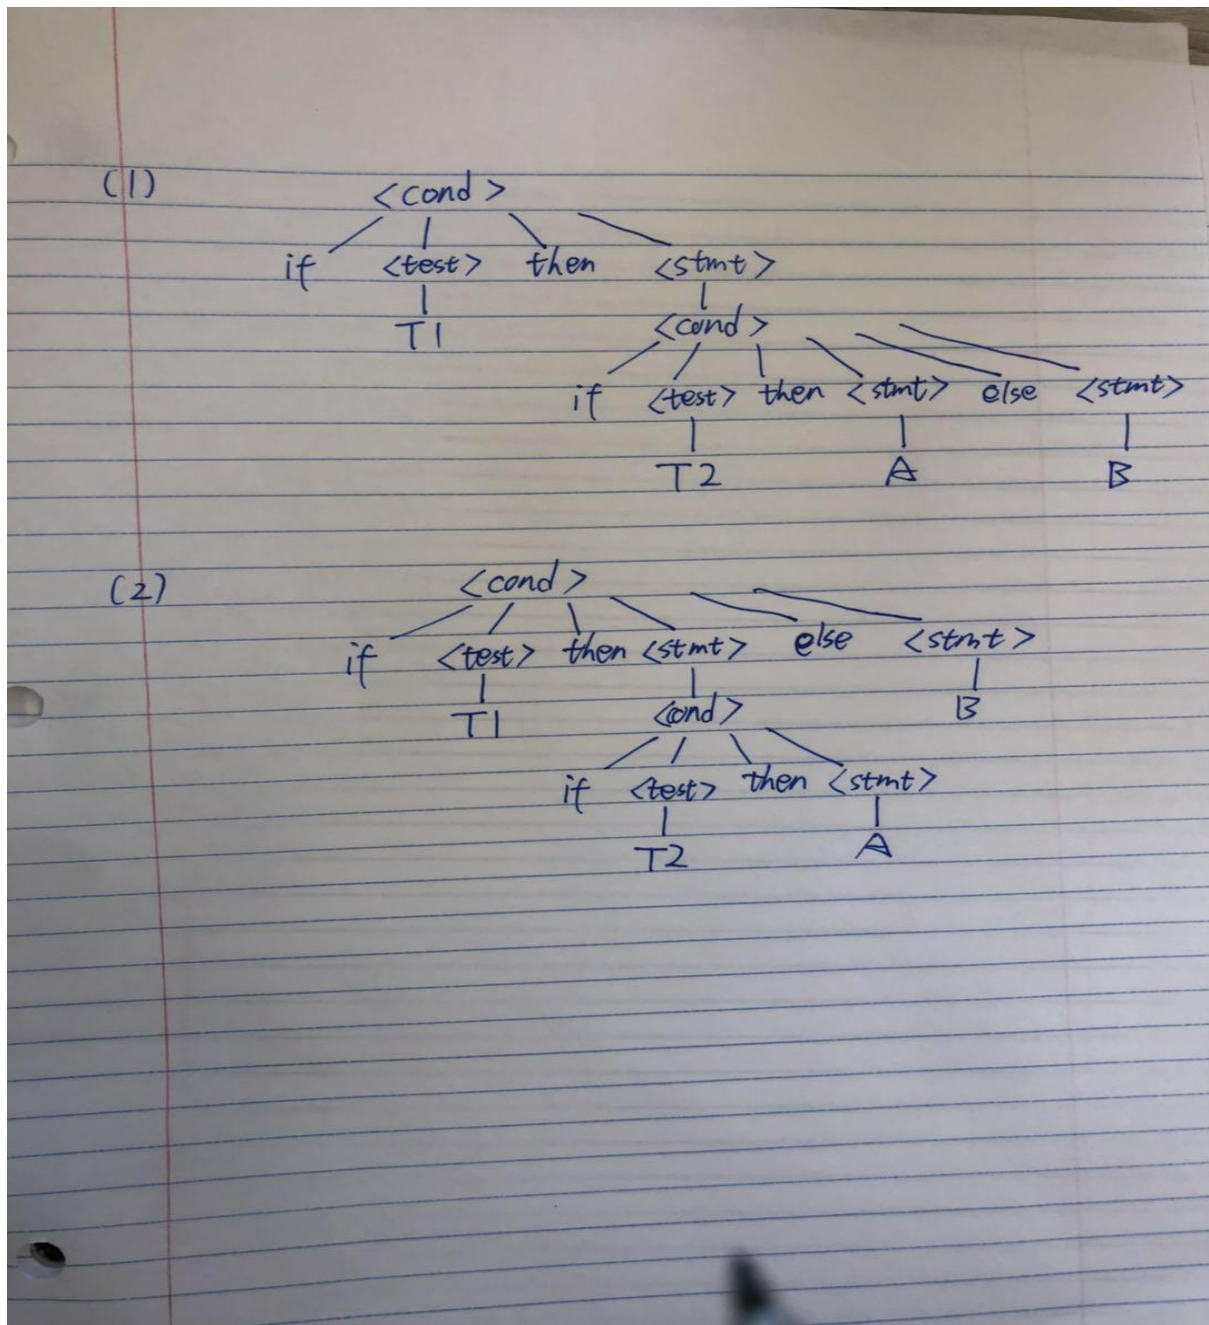 (1) <cond>
if <test> then <stmt>
T1 <cond>
if <test> then <stmt> else <stmt>
T2 A B
(2) <cond>
if <test> then <stmt> else <stmt>
T1 <cond> B
if <test> then <stmt>
T2 A